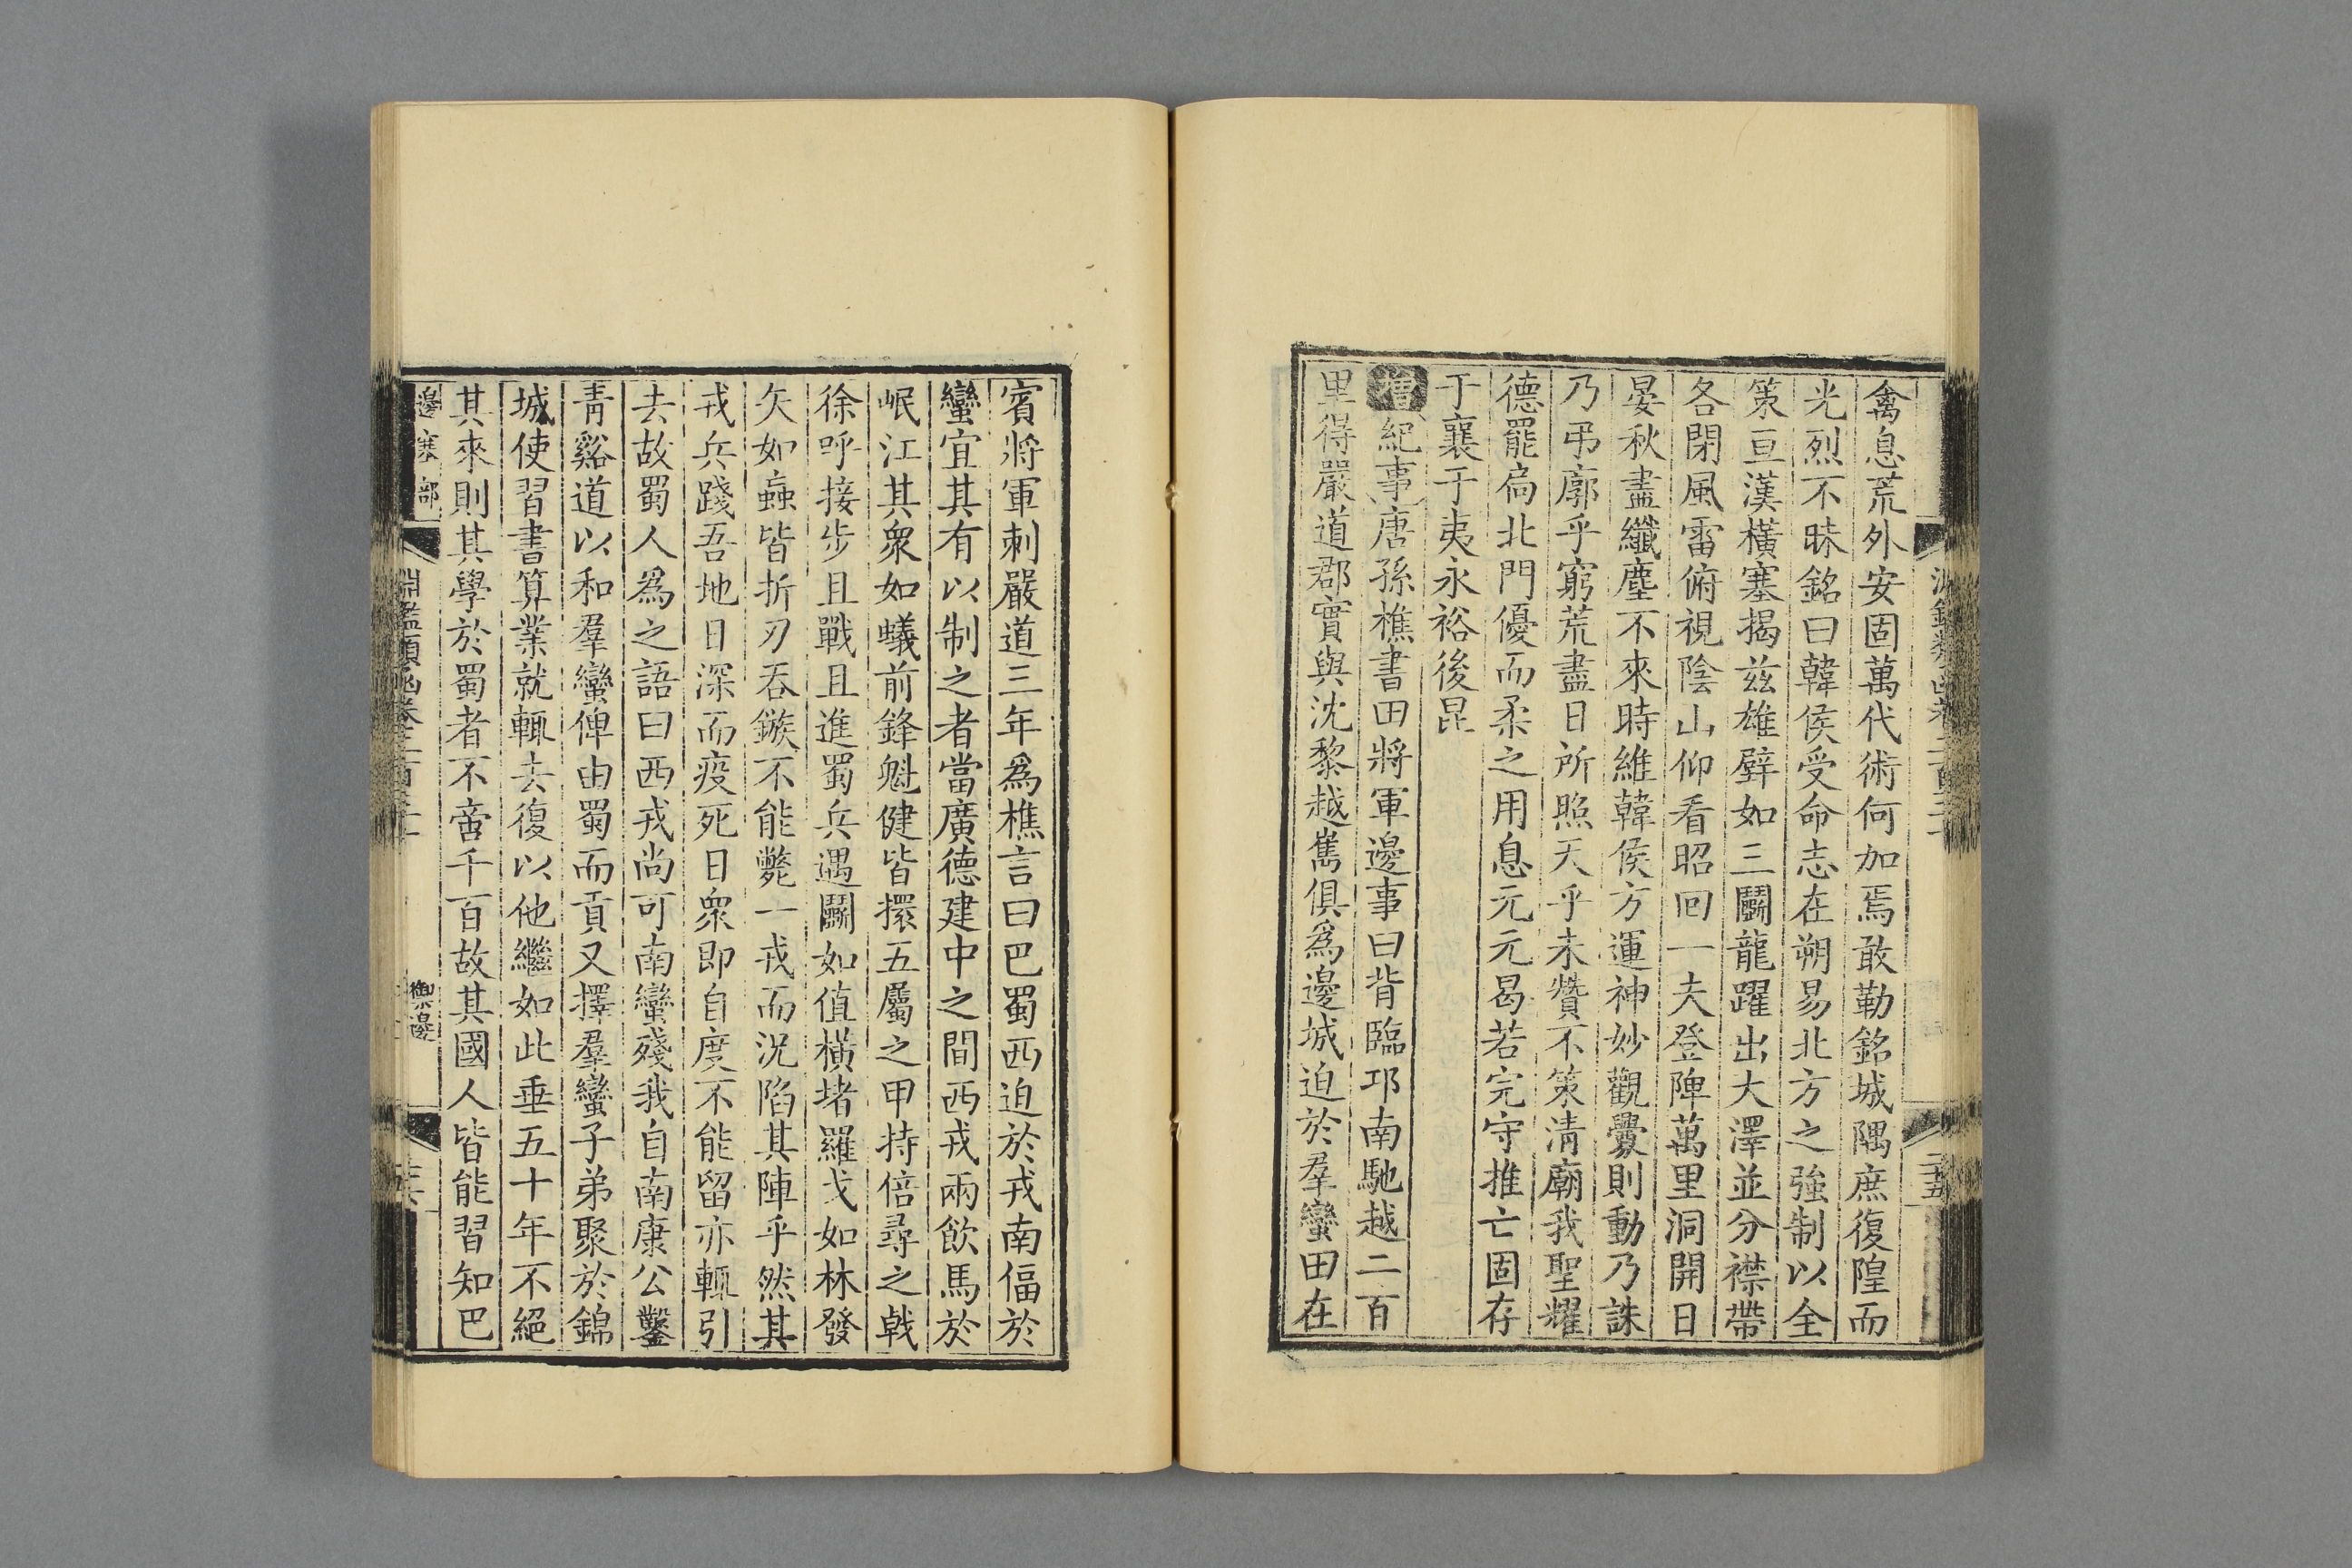 禽息荒外安固萬代術何加焉敢勒銘城隅庶復隍而
光烈不昧銘曰韓侯受命志在朔易北方之強制以全
策亘漢橫塞揭兹雄壁如三鬬龍躍出大澤並分襟帶
各閉風雷俯視陰山仰看昭回一夫登陴萬里洞開日
晏秋盡纖塵不來時維韓侯方運神妙觀釁則動乃誅
乃弔廓乎窮荒盡日所照天乎未贊不策清廟我聖耀
德罷扃北門優而柔之用息元元曷若完守推亡固存
于襄于夷永裕後昆
增紀事唐孫樵書田將軍邊事曰背臨邛南馳越二百
里得嚴道郡實與沈黎越嶲俱爲邊城迫於羣蠻田在
二十五
賓將軍刺嚴道三年爲樵言曰巴蜀西迫於戎南偪於
蠻宜其有以制之者當廣德建中之間西戎兩飲馬於
岷江其衆如蟻前鋒魁健皆擐五屬之甲持倍尋之戟
徐呼接步且戰且進蜀兵遇鬬如值横堵羅戈如林發
矢如蝱皆折刃吞鏃不能斃一戎而況陷其陣乎然其
戎兵踐吾地日深而疫死日衆即自度不能留亦輒引
去故蜀人爲之語曰西戎尚可南蠻殘我自南康公鑿
青谿道以和羣蠻俾由蜀而貢又擇羣蠻子弟聚於錦
城使習書算業就輒去復以他繼如此垂五十年不絕
其來則其學於蜀者不啻千百故其國人皆能習知巴
邊塞部
淵鑑類函卷
禦邊